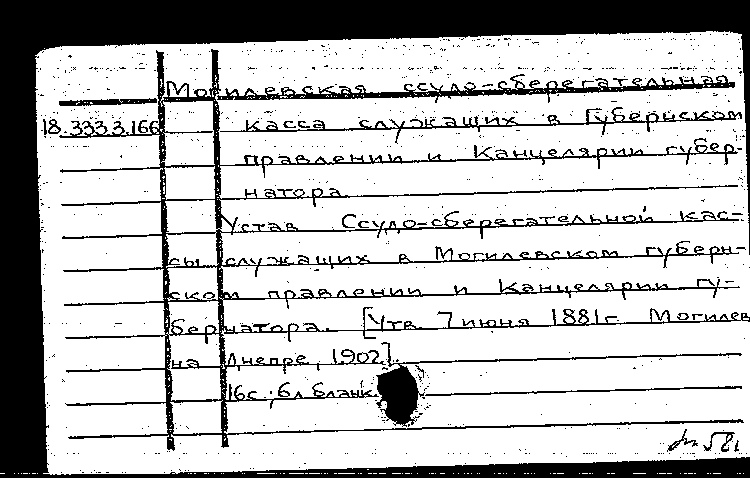 Могилевская ссудо-сберегательная
18.333.3.166 касса служащих в Губернском
правлении и Канцелярии губер-
натора.
Устав Ссудо-сберегательной кас-
сы служащих в Могилевском губерн-
ском правлении и Канцелярии гу-
бернатора. [Утв. 7 июня 1881г. Могилев
на Днепре, 1902].
16с.; бл. бланк.